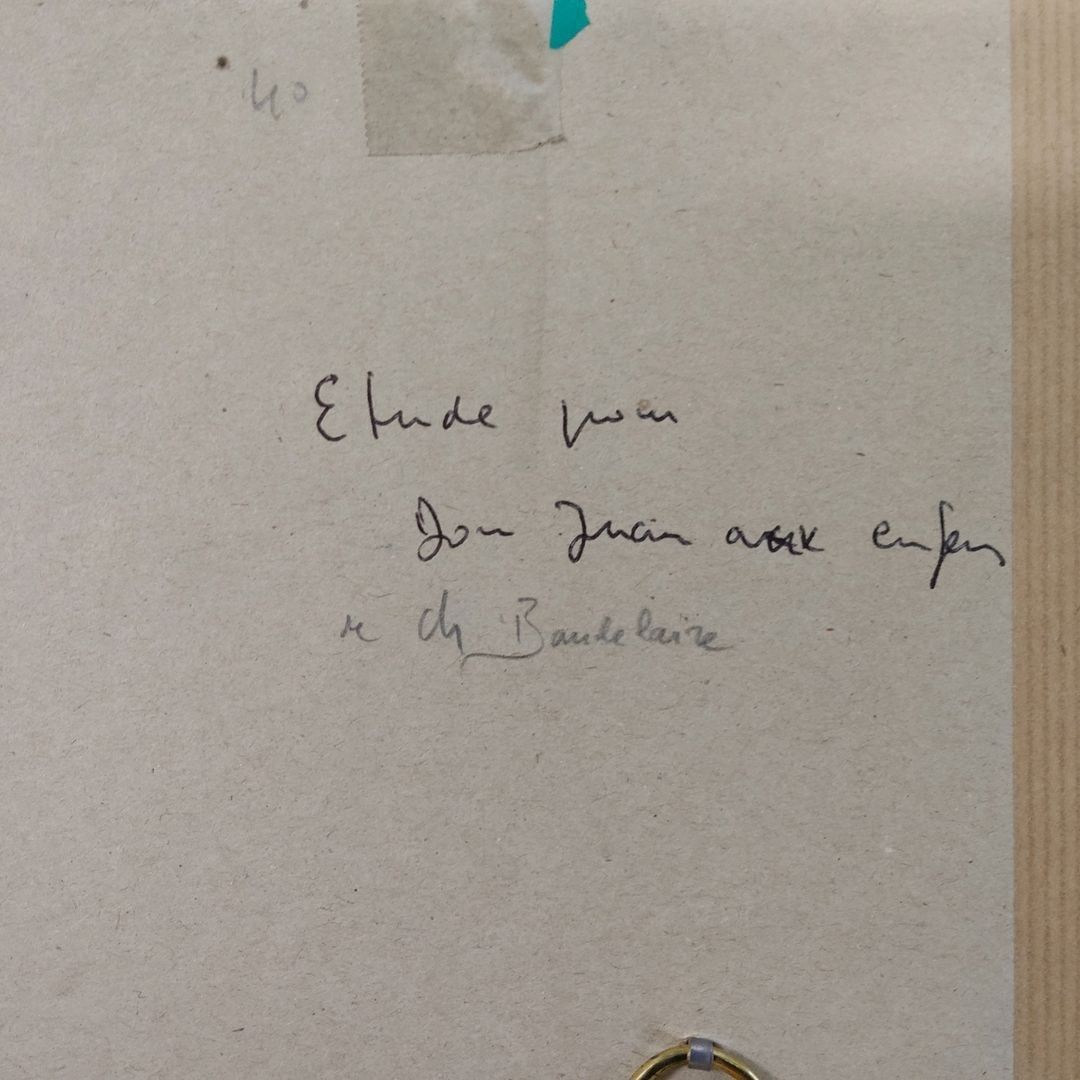 40
Etude pour
Don Juan aux enfers
Ch Baudelaire